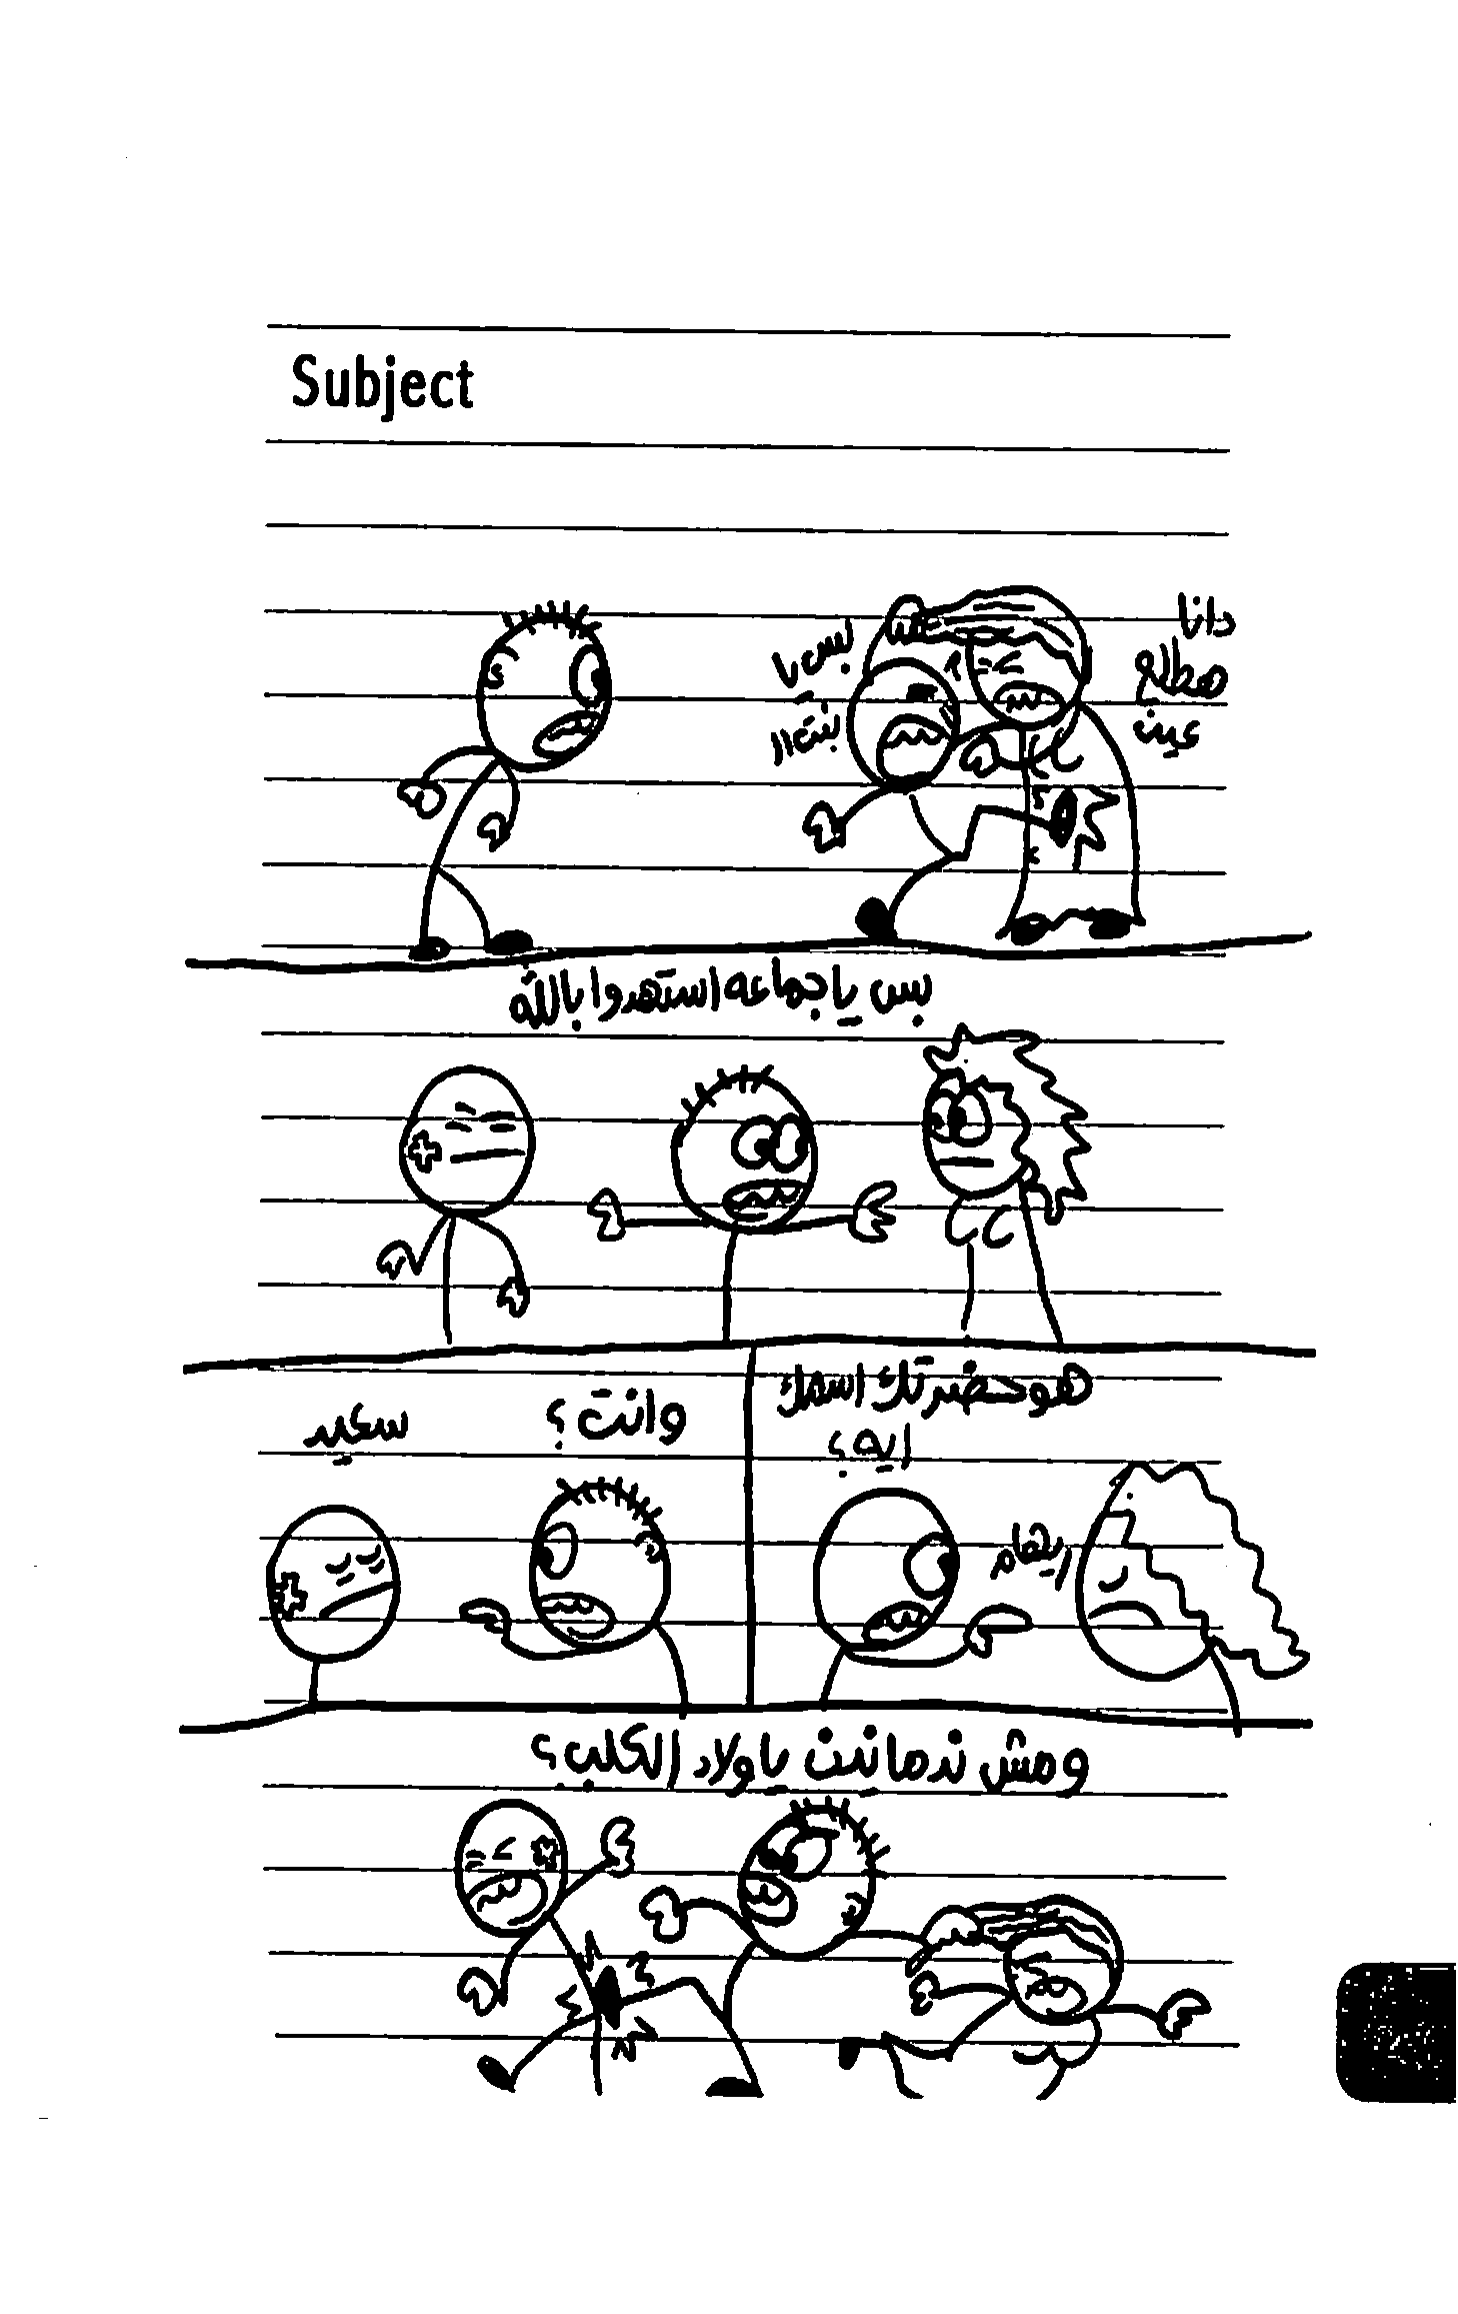 Subject
دانا
هطلع
عين
بس يا
بنت الـ
بس يا جماعه استهدوا بالله
هو حضرتك اسمك
ايه؟
ريهام
وانت؟
سعيد
ومش ندمانين يا ولاد الكلب؟